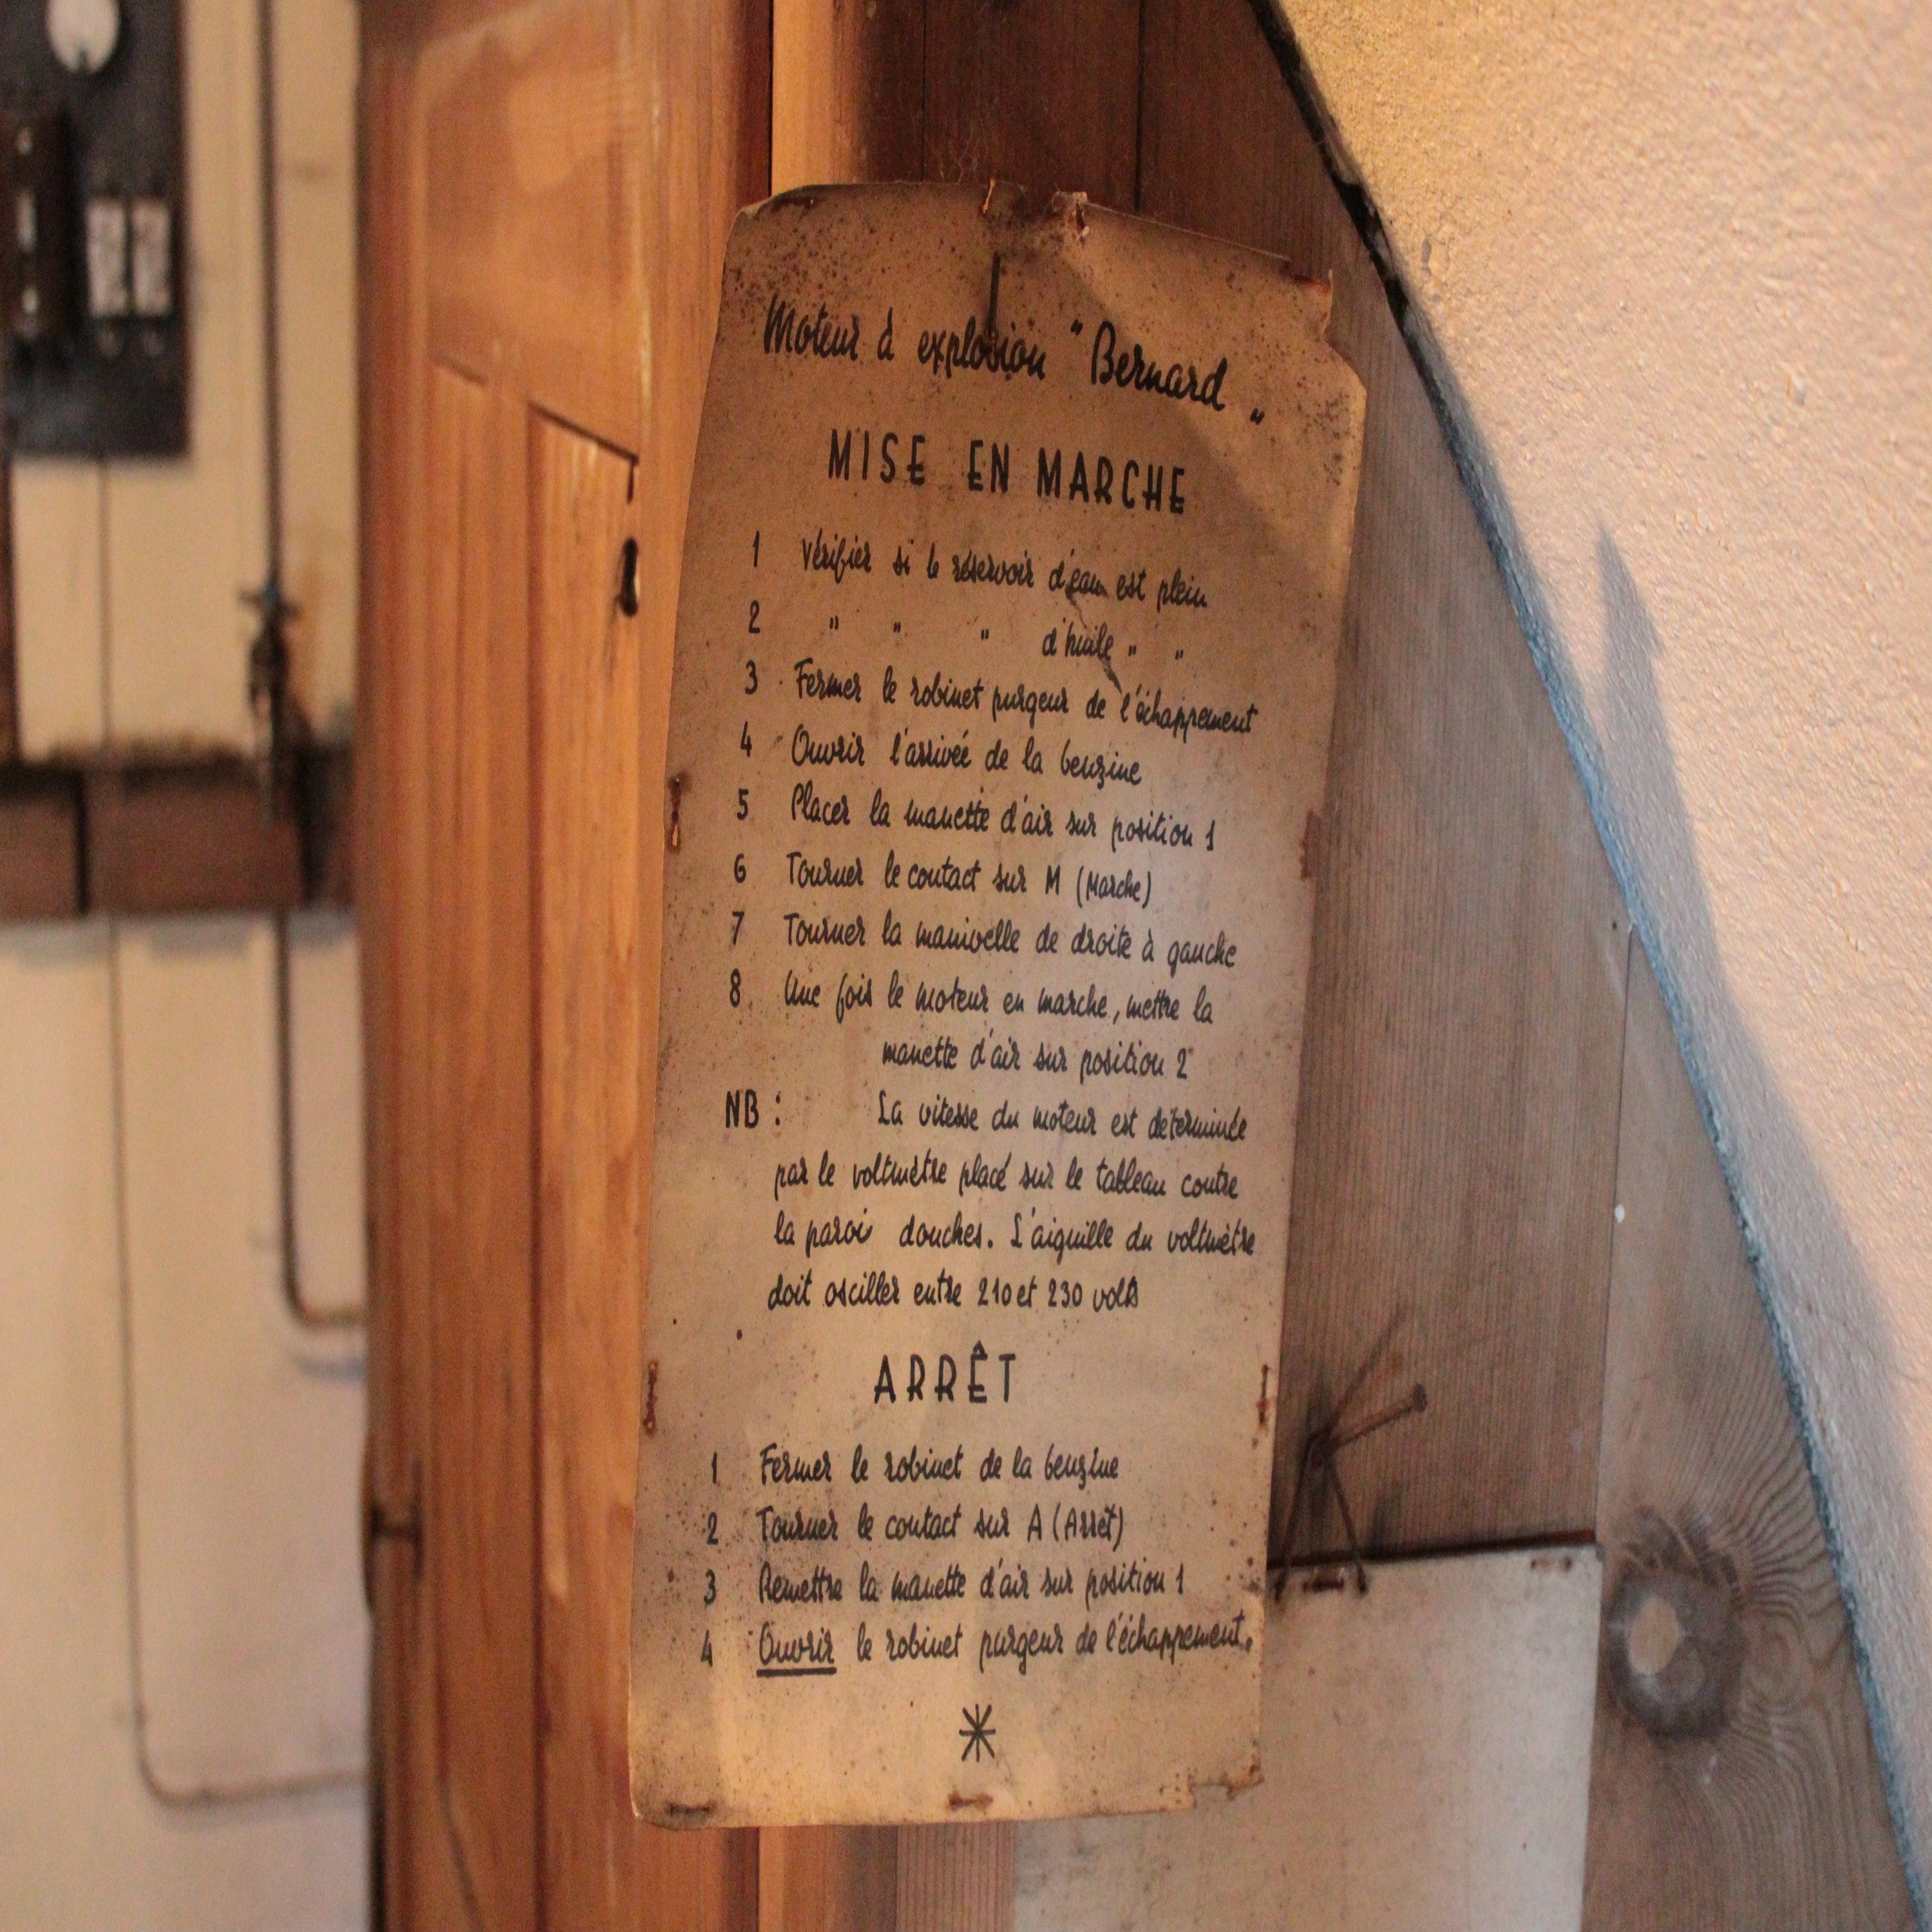 Moteur à explosion "Bernard"
MISE EN MARCHE
1 Vérifier si le réservoir d'eau est plein
2 " " " d'huile " "
3 Fermer le robinet purgeur de l'échappement
4 Ouvrir l'arrivée de la benzine
5 Placer la manette d'air sur position 1
6 Tourner le contact sur M (Marche)
7 Tourner la manivelle de droite à gauche
8 Une fois le moteur en marche, mettre la
manette d'air sur position 2
NB : La vitesse du moteur est déterminée
par le voltmètre placé sur le tableau contre
la paroi douches. L'aiguille du voltmètre
doit osciller entre 210 et 230 volts
ARRÊT
1 Fermer le robinet de la benzine
2 Tourner le contact sur A (Arrêt)
3 Remettre la manette d'air sur position 1
4 Ouvrir le robinet purgeur de l'échappement.